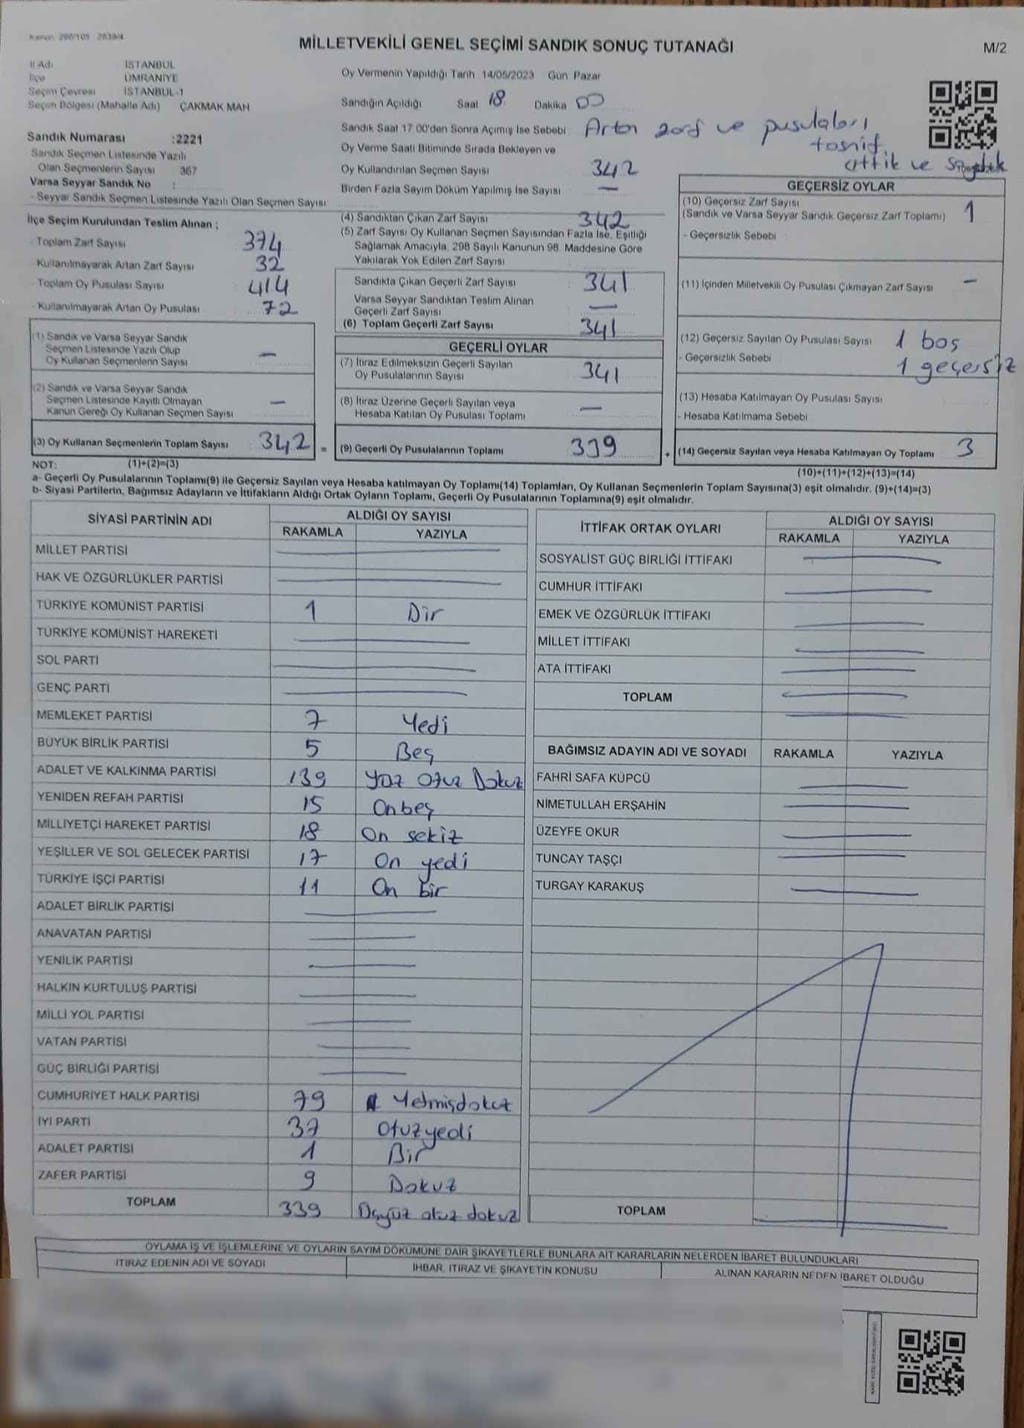 Kanun: 298/105 2839/4
MİLLETVEKİLİ GENEL SEÇİMİ SANDIK SONUÇ TUTANAĞI
M/2
İl Adı İSTANBUL
İlçe ÜMRANİYE
Seçim Çevresi İSTANBUL-1
Seçim Bölgesi (Mahalle Adı) ÇAKMAK MAH
Sandık Numarası :2221
Sandık Seçmen Listesinde Yazılı
Olan Seçmenlerin Sayısı 367
Varsa Seyyar Sandık No :
- Seyyar Sandık Seçmen Listesinde Yazılı Olan Seçmen Sayısı
Oy Vermenin Yapıldığı Tarih 14/05/2023 Gün Pazar
Sandığın Açıldığı Saat 18 Dakika 00
Sandık Saat 17.00'den Sonra Açılmış İse Sebebi Artan zarf ve pusulaları
tasnif
ettik ve
Oy Verme Saati Bitiminde Sırada Bekleyen ve
Oy Kullandırılan Seçmen Sayısı 342
Birden Fazla Sayım Döküm Yapılmış İse Sayısı —
İlçe Seçim Kurulundan Teslim Alınan ;
- Toplam Zarf Sayısı 374
- Kullanılmayarak Artan Zarf Sayısı 32
- Toplam Oy Pusulası Sayısı 414
- Kullanılmayarak Artan Oy Pusulası 72
(1) Sandık ve Varsa Seyyar Sandık
Seçmen Listesinde Yazılı Olup
Oy Kullanan Seçmenlerin Sayısı —
(2) Sandık ve Varsa Seyyar Sandık
Seçmen Listesinde Kayıtlı Olmayan
Kanun Gereği Oy Kullanan Seçmen Sayısı —
(3) Oy Kullanan Seçmenlerin Toplam Sayısı 342 =
(4) Sandıktan Çıkan Zarf Sayısı 342
(5) Zarf Sayısı Oy Kullanan Seçmen Sayısından Fazla İse, Eşitliği
Sağlamak Amacıyla, 298 Sayılı Kanunun 98. Maddesine Göre
Yakılarak Yok Edilen Zarf Sayısı
Sandıkta Çıkan Geçerli Zarf Sayısı 341
Varsa Seyyar Sandıktan Teslim Alınan
Geçerli Zarf Sayısı —
(6) Toplam Geçerli Zarf Sayısı 341
GEÇERLİ OYLAR
(7) İtiraz Edilmeksizin Geçerli Sayılan
Oy Pusulalarının Sayısı 341
(8) İtiraz Üzerine Geçerli Sayılan veya
Hesaba Katılan Oy Pusulası Toplamı —
(9) Geçerli Oy Pusulalarının Toplamı 339 +
GEÇERSİZ OYLAR
(10) Geçersiz Zarf Sayısı
(Sandık ve Varsa Seyyar Sandık Geçersiz Zarf Toplamı) 1
- Geçersizlik Sebebi
(11) İçinden Milletvekili Oy Pusulası Çıkmayan Zarf Sayısı —
(12) Geçersiz Sayılan Oy Pusulası Sayısı 1 boş
- Geçersizlik Sebebi 1 geçersiz
(13) Hesaba Katılmayan Oy Pusulası Sayısı
- Hesaba Katılmama Sebebi
(14) Geçersiz Sayılan veya Hesaba Katılmayan Oy Toplamı 3
NOT: (1)+(2)=(3)
(10)+(11)+(12)+(13)=(14)
a- Geçerli Oy Pusulalarının Toplamı(9) ile Geçersiz Sayılan veya Hesaba katılmayan Oy Toplamı(14) Toplamları, Oy Kullanan Seçmenlerin Toplam Sayısına(3) eşit olmalıdır. (9)+(14)=(3)
b- Siyasi Partilerin, Bağımsız Adayların ve İttifakların Aldığı Ortak Oyların Toplamı, Geçerli Oy Pusulalarının Toplamına(9) eşit olmalıdır.
SİYASİ PARTİNİN ADI ALDIĞI OY SAYISI
RAKAMLA YAZIYLA
MİLLET PARTİSİ
HAK VE ÖZGÜRLÜKLER PARTİSİ
TÜRKİYE KOMÜNİST PARTİSİ 1 Bir
TÜRKİYE KOMÜNİST HAREKETİ
SOL PARTİ
GENÇ PARTİ
MEMLEKET PARTİSİ 7 Yedi
BÜYÜK BİRLİK PARTİSİ 5 Beş
ADALET VE KALKINMA PARTİSİ 139 Yüz Otuz Dokuz
YENİDEN REFAH PARTİSİ 15 Onbeş
MİLLİYETÇİ HAREKET PARTİSİ 18 On sekiz
YEŞİLLER VE SOL GELECEK PARTİSİ 17 On yedi
TÜRKİYE İŞÇİ PARTİSİ 11 On bir
ADALET BİRLİK PARTİSİ
ANAVATAN PARTİSİ
YENİLİK PARTİSİ
HALKIN KURTULUŞ PARTİSİ
MİLLİ YOL PARTİSİ
VATAN PARTİSİ
GÜÇ BİRLİĞİ PARTİSİ
CUMHURİYET HALK PARTİSİ 79 Yetmişdokuz
İYİ PARTİ 37 Otuzyedi
ADALET PARTİSİ 1 Bir
ZAFER PARTİSİ 9 Dokuz
TOPLAM 339 Üçyüz otuz dokuz
İTTİFAK ORTAK OYLARI ALDIĞI OY SAYISI
RAKAMLA YAZIYLA
SOSYALİST GÜÇ BİRLİĞİ İTTİFAKI
CUMHUR İTTİFAKI
EMEK VE ÖZGÜRLÜK İTTİFAKI
MİLLET İTTİFAKI
ATA İTTİFAKI
TOPLAM
BAĞIMSIZ ADAYIN ADI VE SOYADI RAKAMLA YAZIYLA
FAHRİ SAFA KÜPCÜ
NİMETULLAH ERŞAHİN
ÜZEYFE OKUR
TUNCAY TAŞÇI
TURGAY KARAKUŞ
TOPLAM
OYLAMA İŞ VE İŞLEMLERİNE VE OYLARIN SAYIM DÖKÜMÜNE DAİR ŞİKAYETLERLE BUNLARA AİT KARARLARIN NELERDEN İBARET BULUNDUKLARI
İTİRAZ EDENİN ADI VE SOYADI İHBAR, İTİRAZ VE ŞİKAYETİN KONUSU ALINAN KARARIN NEDEN İBARET OLDUĞU